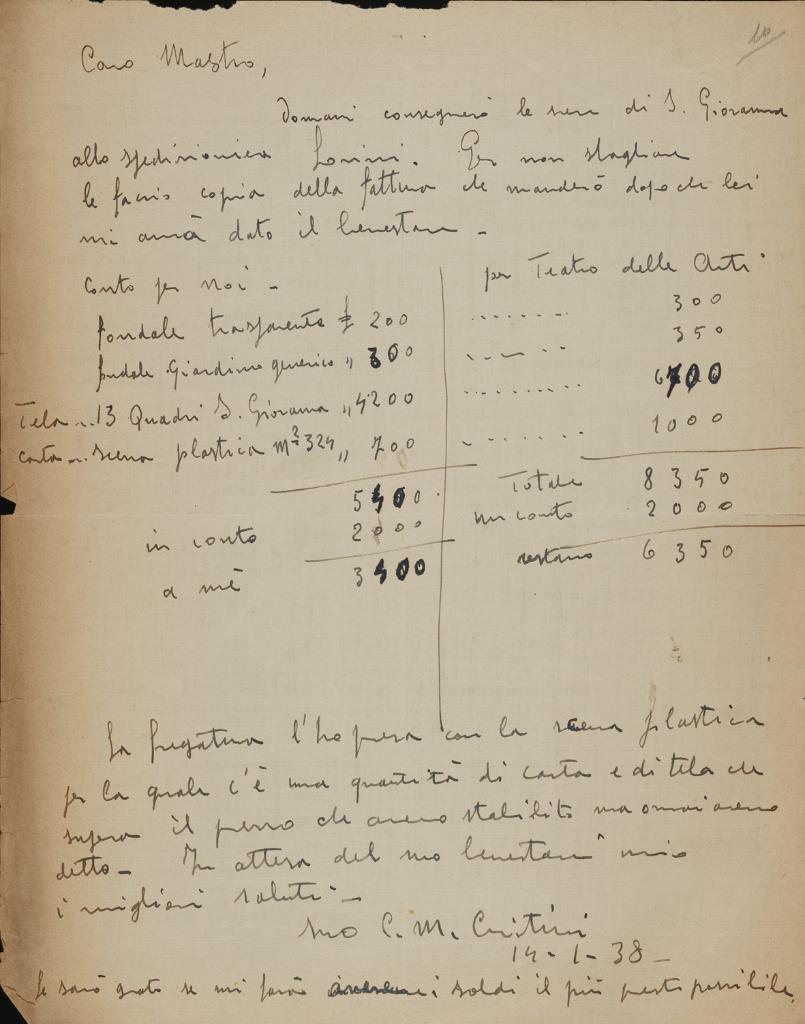 10
Caro Mastro,
Domani consegnerò le scene di S. Giovanna
allo spedizioniere Lonini. Per non sbagliare
le faccio copia della fattura che manderò dopo che lei
mi avrà dato il benestare -
Conto per noi -
fondale trasparente £ 200
fondale Giardino generico " 300
Tela .. 13 Quadri S. Giovanna " 4200
carta .. scena plastica m² 324 " 700
5400
in conto 2000
a me 3400
per Teatro delle Arti
........ 300
........ 350
........ 6700
........ 1000
Totale 8350
in conto 2000
restano 6350
La fregatura l'ho presa con la scena plastica
per la quale c'è una quantità di carta e di tela che
supera il prezzo che avevo stabilito ma ormai avevo
detto - In attesa del suo benestare invio
i migliori saluti -
suo C. M. Cristini
14 - 1 - 38 -
Le sarò grato se mi farà i soldi il più presto possibile.